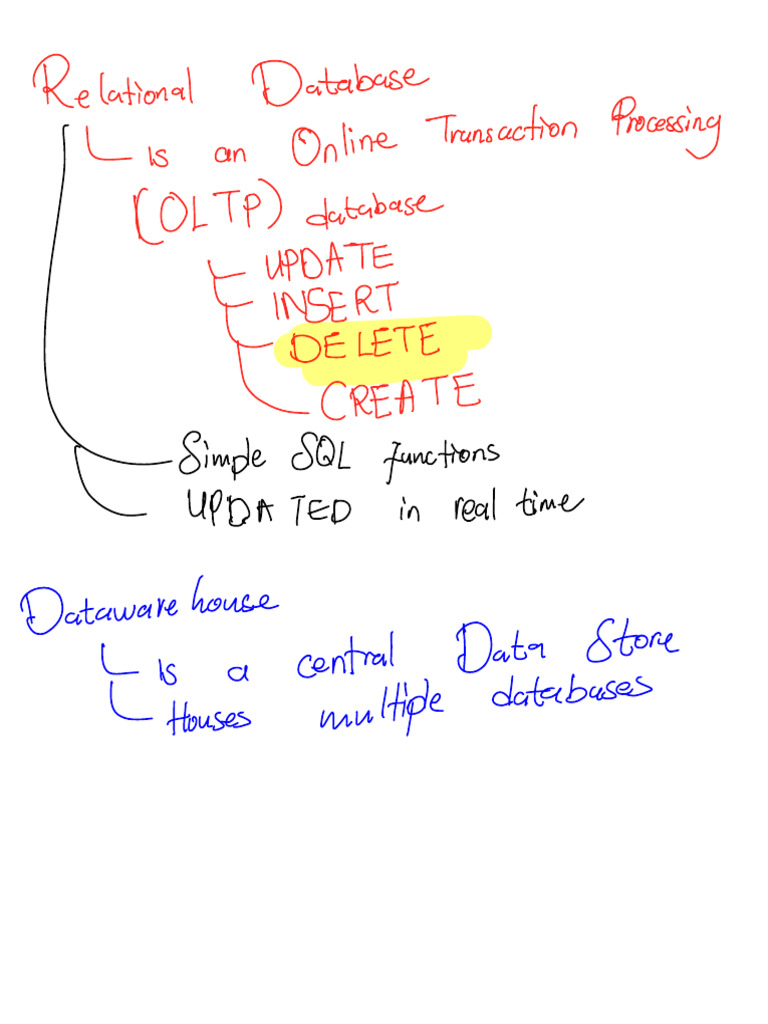 Relational Database
is an Online Transaction Processing
(OLTP) database
UPDATE
INSERT
DELETE
CREATE
Simple SQL functions
UPDATED in real time
Dataware house
is a central Data Store
Houses multiple databases